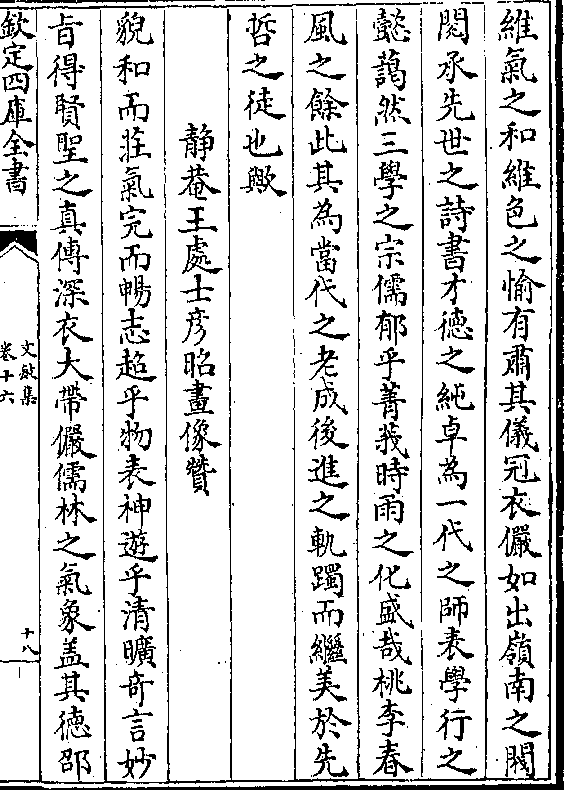 維氣之和維色之愉有肅其儀冠衣儼如出嶺南之閥
閱承先世之詩書才德之純卓為一代之師表學行之
懿藹然三學之宗儒郁乎菁莪時雨之化盛哉桃李春
風之餘此其為當代之老成後進之軌躅而繼美於先
哲之徒也歟
静菴王處士彦昭畫像贊
貌和而莊氣完而暢志超乎物表神遊乎清曠奇言妙
旨得賢聖之真傳深衣大帶儼儒林之氣象盖其德邵
欽定四庫全書
文敏集
卷十六
十八